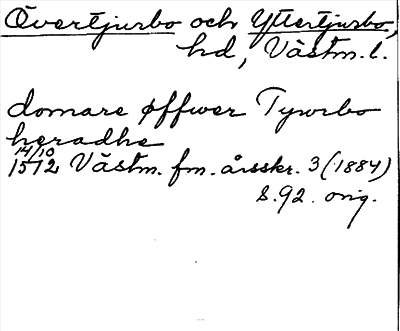 Övertjurbo och Yttertjurbo,
hd, Västm. l.
domare øffwer Tywrbo
heradhe
14/10
1512 Västm. fm. årsskr. 3 (1884)
s. 92. orig.